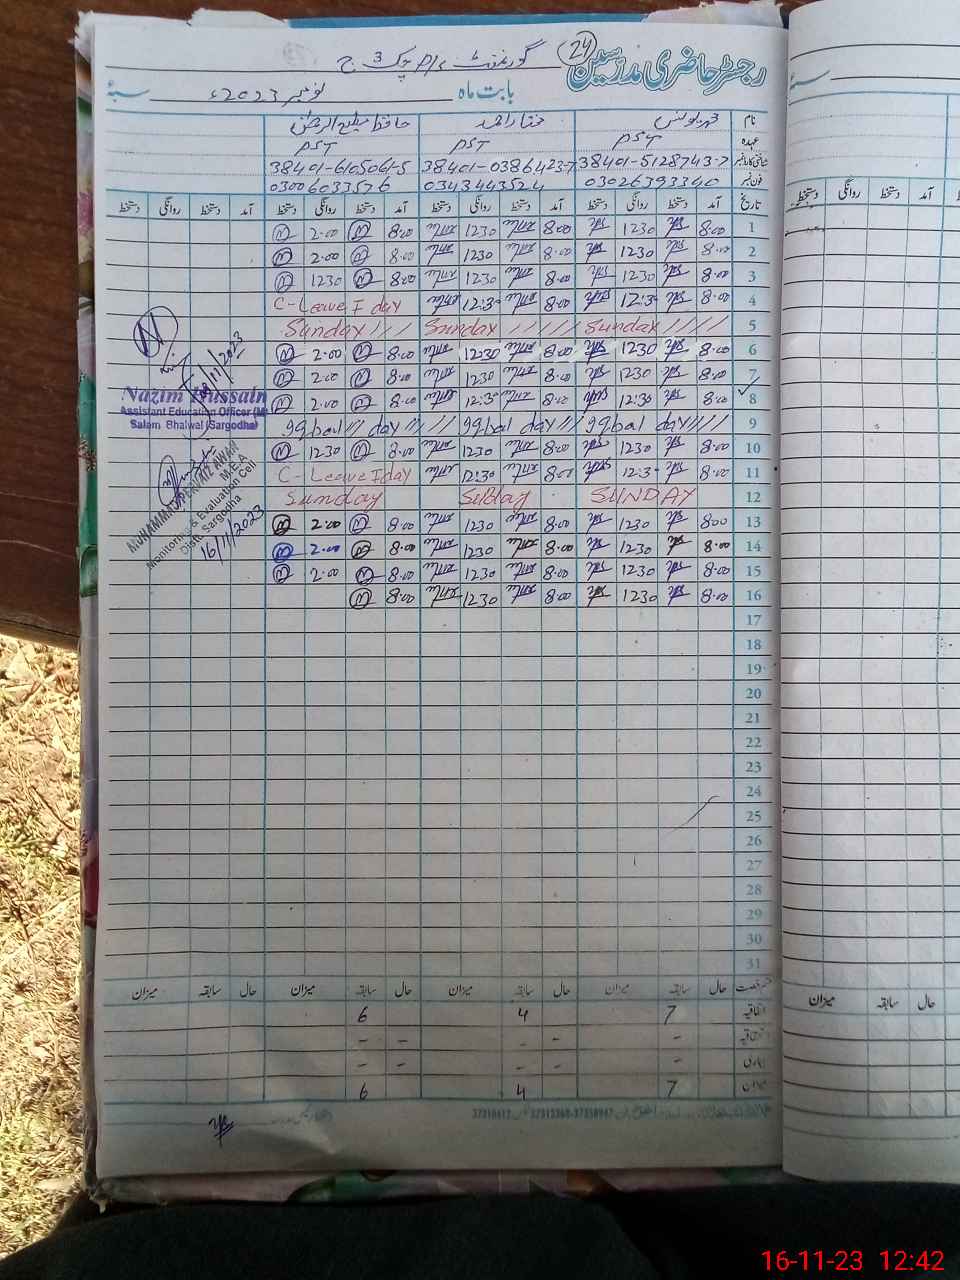 رجسٹر حاضری مدرسین
24
گورنمنٹ P/S چک 3 ج
بابت ماہ نومبر 2023ء سنہ
نام حافظ
عہدہ PST PST PST
شناختی کارڈ نمبر 38401-5128743-7 38401-0386423-7 38401-6105061-5
فون نمبر 03026393340 0343443524 03006033576
تاریخ آمد دستخط روانگی دستخط آمد دستخط روانگی دستخط آمد دستخط روانگی دستخط آمد دستخط روانگی دستخط
1 8.00 1230 8.00 1230 8.00 2.00
2 8.00 1230 8.00 1230 8.00 2.00
3 8.00 1230 8.00 1230 8.00 1230
4 8.00 12:30 8.00 12:30 C-Leave I day
5 Sunday Sunday Sunday
6 8.00 1230 8.00 1230 8.00 2.00
7 8.00 1230 8.00 1230 8.00 2.00
8 8.00 12:30 8.00 12:30 8.00 2.00
9 Iqbal day Iqbal day Iqbal day
10 8.00 1230 8.00 1230 8.00 1230
11 8.00 12:30 8.00 12:30 C-Leave I day
12 SUNDAY Sunday Sunday
13 8.00 1230 8.00 1230 8.00 2.00
14 8.00 1230 8.00 1230 8.00 2.00
15 8.00 1230 8.00 1230 8.00 2.00
16 8.00 1230 8.00 1230 8.00
17
18
19
20
21
22
23
24
25
26
27
28
29
30
31
حال سابقہ میزان حال سابقہ میزان حال سابقہ میزان حال سابقہ میزان
اتفاقیہ 7 4 6
میزان 7 4 6
Nazim Hussain
Assistant Education Officer (M)
Salam Bhalwal (Sargodha)
MUHAMMAD PERVAIZ AWAN
M.E.A
Monitoring & Evaluation Cell
Distt. Sargodha
16/11/2023
16-11-23 12:42